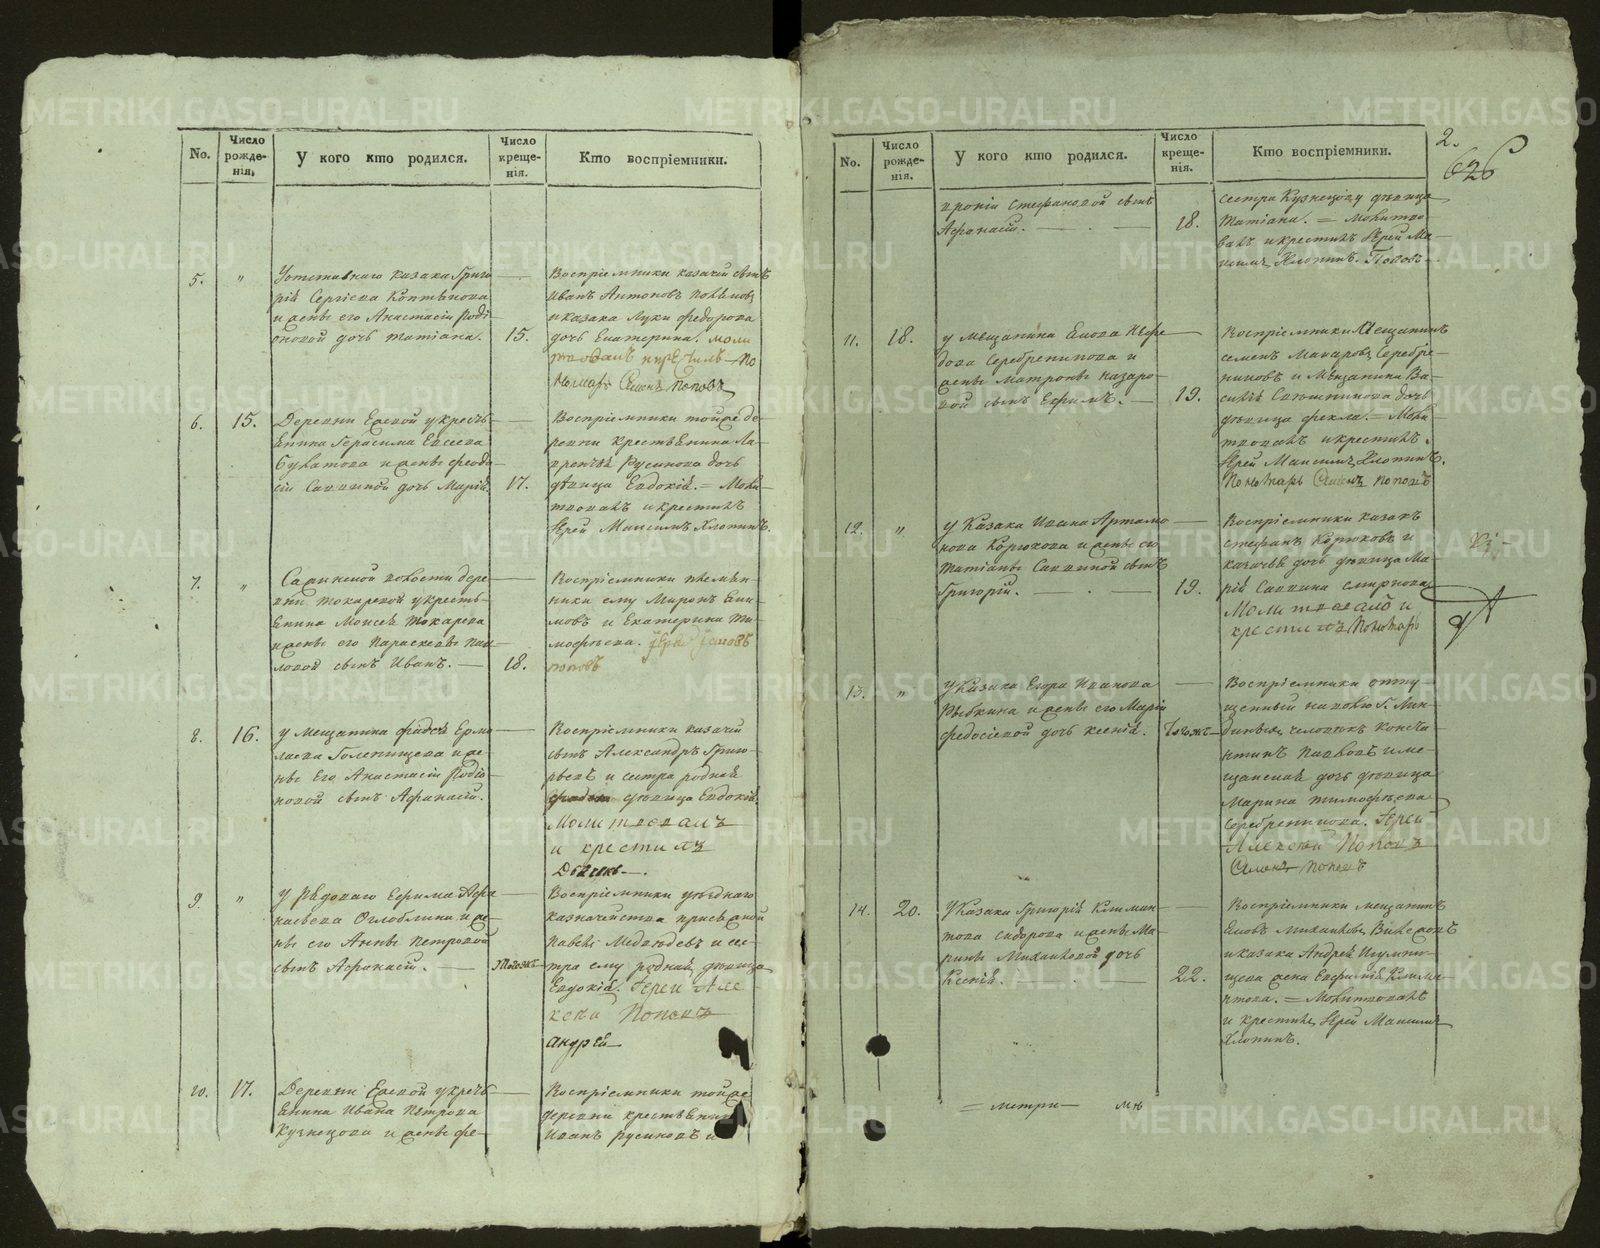 No.
Число рожде- нія.
У кого кто родился.
Число креще- нія.
Кто воспріемники.
5. "
Уотставнаго казака Григо
рія Сергѣева
и жены его Анастасіи Родi
оновой дочь татіана. 15.
Воспріемники казачій сынъ
Иванъ Антоновъ
и казака Луки Федорова
дочь Екатерина. моли
по
номарь Сѵменъ поповъ
6. 15.
Деревни Еловой укресть
янина Герасима Евсеева
Булатова и жены феодо
сіи Саввиной дочь Марія. 17.
Воспріемники тойже де
ревни крестьянина Ла
врентья Русинова дочь
дѣвица Евдокія. = Моли
твовалъ икрестилъ
Іерей Максимъ Хлопинъ.
7. "
волости дере
вни токаревой укресть
янина Моисея Токарева
ижены его Параскевы Пав
ловой сынъ Иванъ. — 18.
Воспріемники племян
ники ему Миронъ
мовъ и Екатерина Ти
мофѣева.
поповъ
8. 16.
у мещанина фадея Ермо
лаева Голенищева и же
ны Его Анастасіи Родіо
новой сынъ Афанасій.
Воспріемники казачій
сынъ Александръ Григо
рьевъ и сестра родная
дѣвица Евдокія.
Молитвовалъ
и крестилъ
9. "
У Рядоваго Ефима Афа
насьева Оглоблина и же
ны его Анны Петровой
сынъ Афанасій. — Тогожъ
Воспріемники уѣзднаго
казначейства присяжной
Павелъ Медведевъ и сес
тра ему родная дѣвица
Евдокія. Іерей Але
ксѣй Поповъ
андрей
10. 17.
Деревни Еловой укресть
янина Ивана Петрова
Кузнецова и жены фе
Воспріемники тойже
деревни крестьянинъ
Иванъ русиновъ и
2.
626
No.
Число рожде- нія.
У кого кто родился.
Число креще- нія.
Кто воспріемники.
вроніи Стефановой сынъ
Афанасій. — 18.
сестра Кузнецову дѣвица
Татіана. = Молитво
валъ икрестилъ Іерей Ма
ксимъ Хлопинъ. Поповъ
11. 18.
у мещанина Еиова Нефе
дова Серебренникова и
жены Матроны назаро
вой сынъ Ефримъ. — 19.
Воспріемники Мещанинъ
семенъ Макаровъ Серебре
никовъ и Мещанина Ва
силія дочь
дѣвица фекла. = Моли
твовалъ икрестилъ.
Іерей Максимъ Хлопинъ.
Пономарь Сѵменъ поповъ
12. "
у Казака Ивана Артамо
нова Корюкова и жены его
татіаны Саввиной сынъ
Григорій. — 19.
Воспріемники казакъ
стефанъ Корюковъ и
казачья дочь дѣвица Ма
рія Саввина смирнова
Молитвовалъ и
крестилъ Пономарь
13. "
Указака Егора Иванова
Рыбкина и жены его Маріи
федосіевой дочь ксенія. Тогожъ
Воспріемники отпу
щенный наволю Г.
человѣкъ Конста
нтинъ Павловъ и ме
щанская дочь дѣвица
Марина тимофѣева
Серебренникова. Іерей
Алексѣй Поповъ
Сѵменъ поповъ
14. 20.
Указака Григорія Климан
това сидорова и жены Ма
рины Михаиловой дочь
Ксенія. — 22.
Воспріемники мещанинъ
Михаиловъ
и казака Андрея
жена Евфимія Клима
нтова. = Молитвовалъ
и крестилъ Іерей Максимъ
Хлопинъ.
METRIKI.GASO-URAL.RU